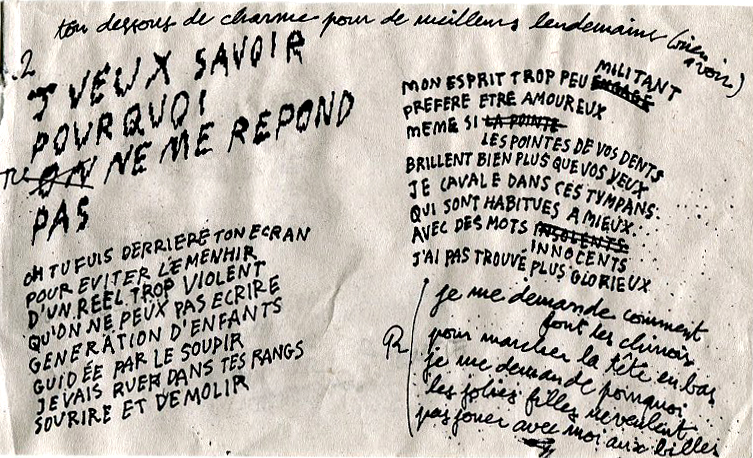 ton dessous de charme pour de meilleurs lendemains (rien à voir)
2
J VEUX SAVOIR
POURQUOI
tu ON NE ME REPOND
PAS
OH TU FUIS DERRIERE TON ECRAN
POUR EVITER L'EMENHIR
D'UN REEL TROP VIOLENT
QU'ON NE PEUX PAS ECRIRE
GENERATION D'ENFANTS
GUIDÉE PAR LE SOUPIR
JE VAIS RUER DANS TES RANGS
SOURIRE ET DEMOLIR
MILITANT
MON ESPRIT TROP PEU ENGAGE
PREFERE ETRE AMOUREUX
MEME SI LA POINTE
LES POINTES DE VOS DENTS
BRILLENT BIEN PLUS QUE VOS YEUX
JE CAVALE DANS CES TYMPANS
QUI SONT HABITUES A MIEUX
AVEC DES MOTS INSOLENTS
INNOCENTS
J'AI PAS TROUVÉ PLUS GLORIEUX
je me demande comment
font les chinois
R pour marcher la tête en bas
je me demande pourquoi
les jolies filles ne veulent
pas jouer avec moi aux billes